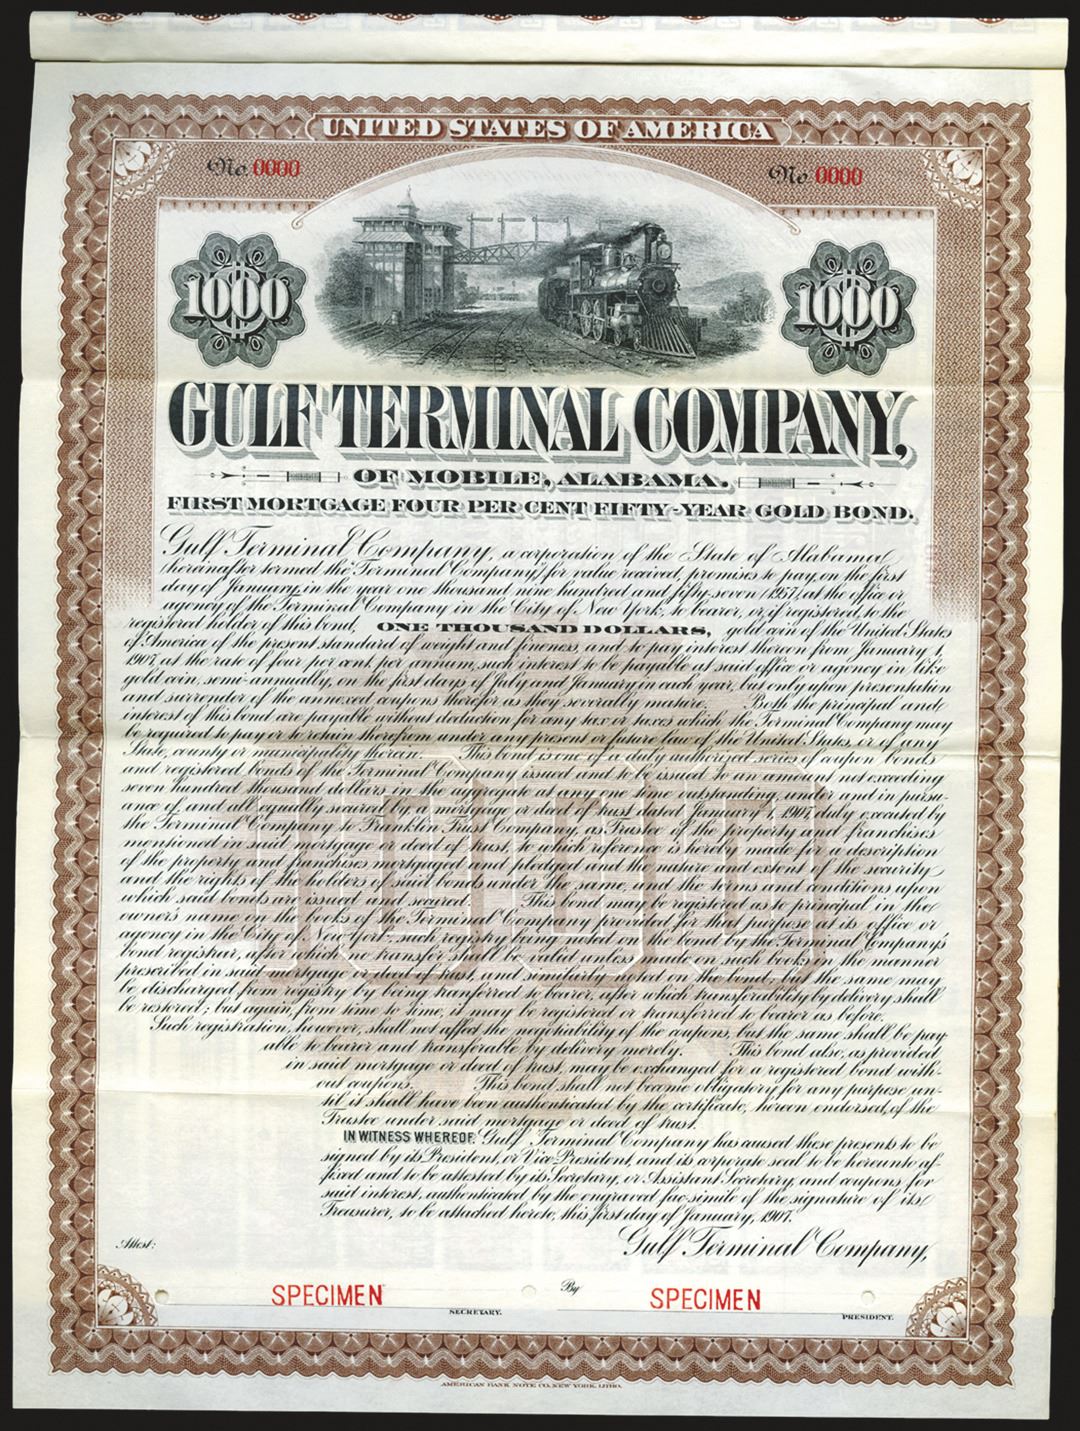 UNITED STATES OF AMERICA
No 0000
No 0000
1000
1000
GULF TERMINAL COMPANY,
OF MOBILE, ALABAMA.
FIRST MORTGAGE FOUR PER CENT FIFTY-YEAR GOLD BOND.
Gulf Terminal Company, a corporation of the State of Alabama
(hereinafter termed the "Terminal Company") for value received, promises to pay, on the first
day of January, in the year one thousand nine hundred and fifty-seven (1957), at the office or
agency of the Terminal Company in the City of New York, to bearer, or, if registered, to the
registered holder of this bond, ONE THOUSAND DOLLARS, gold coin of the United States
of America of the present standard of weight and fineness, and to pay interest thereon from January 1,
1907, at the rate of four per cent. per annum, such interest to be payable at said office or agency in like
gold coin, semi-annually, on the first days of July and January in each year, but only upon presentation
and surrender of the annexed coupons therefor as they severally mature. Both the principal and
interest of this bond are payable without deduction for any tax or taxes which the Terminal Company may
be required to pay or to retain therefrom under any present or future law of the United States, or of any
State, county or municipality therein. This bond is one of a duly authorized series of coupon bonds
and registered bonds of the Terminal Company issued and to be issued to an amount not exceeding
seven hundred thousand dollars in the aggregate at any one time outstanding, under and in pursu-
ance of, and all equally secured by a mortgage or deed of trust dated January 1, 1907, duly executed by
the Terminal Company to Franklin Trust Company, as Trustee of the property and franchises
mentioned in said mortgage or deed of trust, to which reference is hereby made for a description
of the property and franchises mortgaged and pledged and the nature and extent of the security
and the rights of the holders of said bonds under the same, and the terms and conditions upon
which said bonds are issued and secured. This bond may be registered as to principal in the
owner's name on the books of the Terminal Company provided for that purpose at its office or
agency in the City of New York, such registry being noted on the bond by the Terminal Company's
bond registrar, after which no transfer shall be valid unless made on such books in the manner
prescribed in said mortgage or deed of trust, and similarly noted on the bond, but the same may
be discharged from registry by being tranferred to bearer, after which transferability by delivery shall
be restored; but again, from time to time, it may be registered or transferred to bearer as before.
Such registration, however, shall not affect the negotiability of the coupons, but the same shall be pay-
able to bearer and transferable by delivery merely. This bond also, as provided
in said mortgage or deed of trust, may be exchanged for a registered bond with-
out coupons. This bond shall not become obligatory for any purpose un-
til it shall have been authenticated by the certificate, hereon endorsed, of the
Trustee under said mortgage or deed of trust.
IN WITNESS WHEREOF, Gulf Terminal Company has caused these presents to be
signed by its President, or Vice-President, and its corporate seal to be hereunto af-
fixed and to be attested by its Secretary, or Assistant Secretary, and coupons for
said interest, authenticated by the engraved fac-simile of the signature of its
Treasurer, to be attached hereto, this first day of January, 1907.
Attest:
Gulf Terminal Company,
SPECIMEN
SECRETARY.
By
SPECIMEN
PRESIDENT.
AMERICAN BANK NOTE CO. NEW YORK, LITHO.